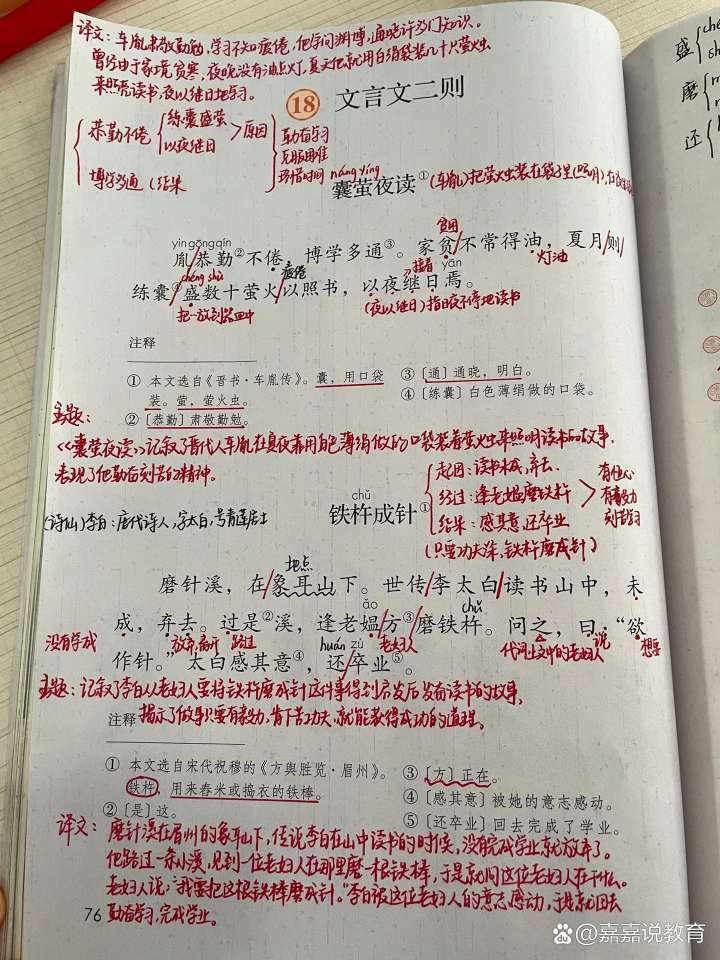 译文：车胤肃敬勤勉，学习不知疲倦，他学问渊博，通晓许多门知识。
曾经由于家境贫寒，夜晚没有油点灯，夏天他就用白绢袋装几十只萤火虫
来照亮读书，夜以继日地学习。
18 文言文二则
恭勤不倦 练囊盛萤 以夜继日 原因
博学多通（结果
勤奋学习
克服困难
珍惜时间
náng yíng
囊萤夜读①（车胤）把萤火虫装在袋子里（照明），在夜里
yìn gōng qín
贫困
胤恭勤②不倦，博学多通③。家贫/不常得油，夏月/则/
chéng shù
疲倦
接着
yān
灯油
练囊④/盛数十萤火/以照书，以夜继日焉。
把…放到器皿中
（夜以继日）指日夜不停地读书
注释
① 本文选自《晋书·车胤传》。囊，用口袋
装。萤，萤火虫。
② 〔恭勤〕肃敬勤勉。
③ 〔通〕通晓，明白。
④ 〔练囊〕白色薄绢做的口袋。
主题：
《囊萤夜读》记叙了晋代人车胤在夏夜用白色薄绢做的口袋装着萤火虫来照明读书的故事，
表现了他勤奋刻苦的精神。
（诗仙）李白：唐代诗人，字太白，号青莲居士
chǔ
铁杵成针①
起因：读书未成，弃去．
经过：逢老媪磨铁杵
结果：感其意，还卒业
有恒心
有毅力
刻苦学习
（只要功夫深，铁杵磨成针）
地点
磨针溪，在/象耳山下。世传/李太白/读书山中，未
ǎo
chǔ
成，弃去。过是②溪，逢老媪/方③/磨铁杵。问之，曰：“欲
没有学成
放弃 离开
路过
huán zú
老妇人
代河上文中的老妇人
说
想要
作针。”太白感其意④，还/卒业⑤。
主题：记叙了李白从老妇人要将铁杵磨成针这件事得到启发后发奋读书的故事，
揭示了做事只要有毅力，肯下苦功夫，就能获得成功的道理。
注释
① 本文选自宋代祝穆的《方舆胜览·眉州》。
铁杵，用来舂米或捣衣的铁棒。
② 〔是〕这。
③ 〔方〕正在。
④ 〔感其意〕被她的意志感动。
⑤ 〔还卒业〕回去完成了学业。
译文：磨针溪在眉州的象耳山下，传说李白在山中读书的时候，没有完成学业就放弃了。
他路过一条小溪，见到一位老妇人在那里磨一根铁棒，于是就问这位老妇人在干什么。
老妇人说：“我要把这根铁棒磨成针。”李白被这位老妇人的意志感动，于是就回去
勤奋学习，完成学业。
76
盛
磨
还
@嘉嘉说教育